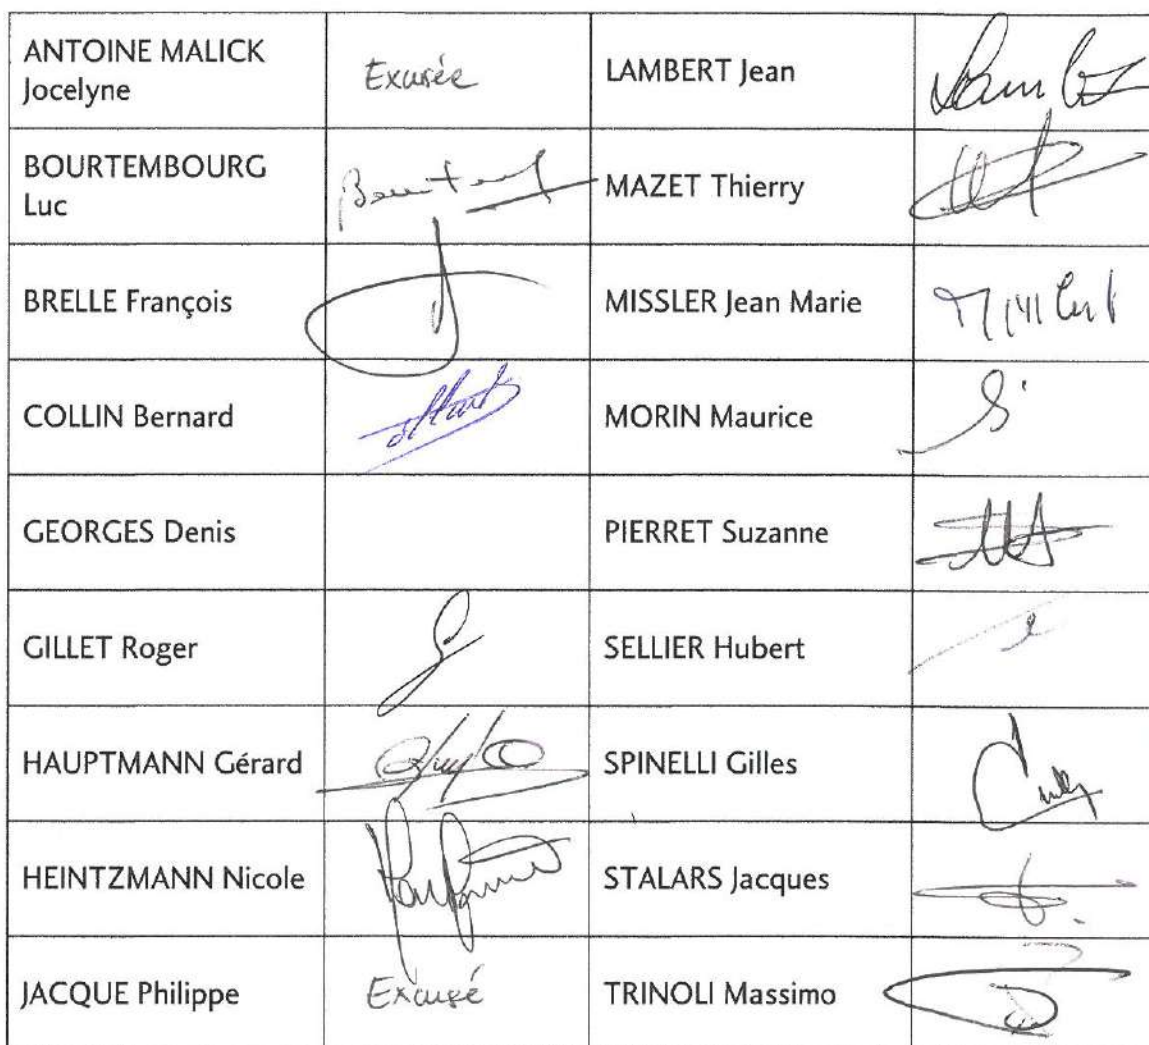 ANTOINE MALICK
Jocelyne
Excusée
LAMBERT Jean
BOURTEMBOURG
Luc
MAZET Thierry
BRELLE François
MISSLER Jean Marie
COLLIN Bernard
MORIN Maurice
GEORGES Denis
PIERRET Suzanne
GILLET Roger
SELLIER Hubert
HAUPTMANN Gérard
SPINELLI Gilles
HEINTZMANN Nicole
STALARS Jacques
JACQUE Philippe
Excusé
TRINOLI Massimo